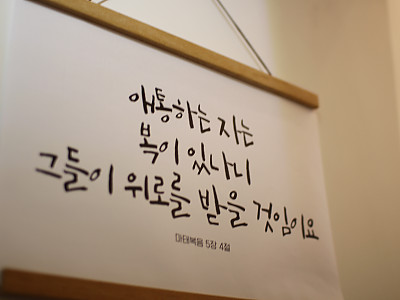 애통하는 자는
복이 있나니
그들이 위로를 받을 것임이요
마태복음 5장 4절